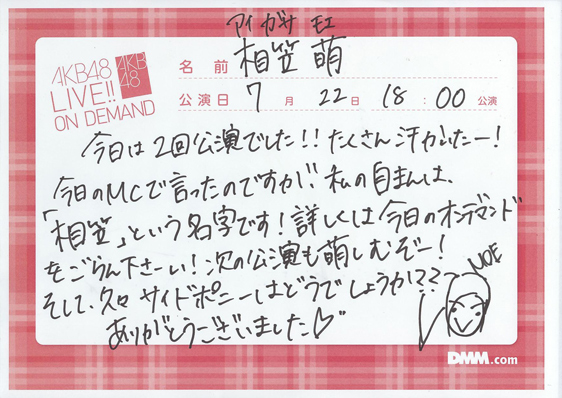 アイガサ モエ
AKB48
LIVE!!
ON DEMAND
AKB
48
名前 相笠 萌
公演日 7月 22日 18:00 公演
今日は2回公演でした!!たくさん汗かいたー!
今日のMCで言ったのですが、私の自まんは、
「相笠」という名字です!詳しくは今日のオンデマンド
をごらん下さーい!次の公演も萌しむぞー!
そして、久々サイドポニーはどうでしょうか??
ありがとうございました♡"
MOE
DMM.com